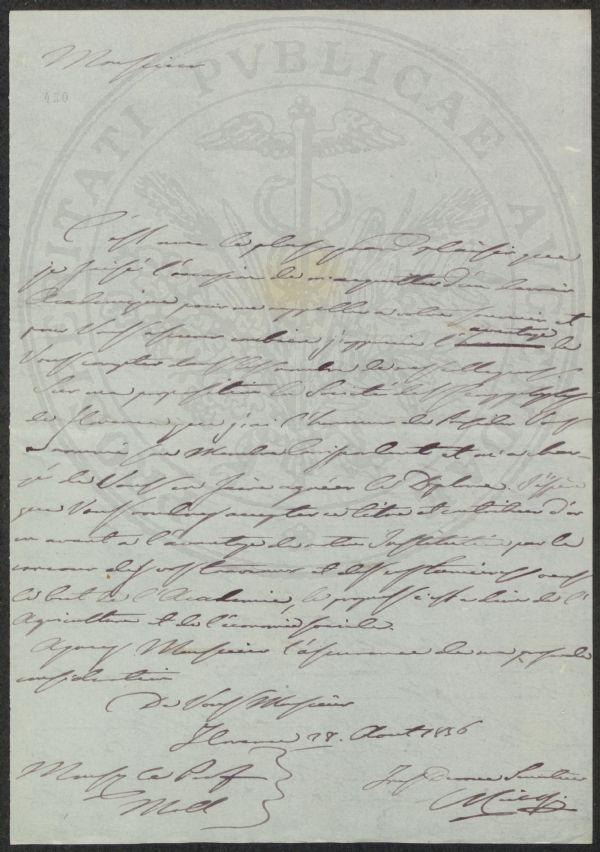 Monsieur
430
C'est avec le plus grand plaisir que
je saisis l'occasion de m'acquitter d'un devoir
Académique pour me rappeller à votre souvenir et
pour Vous assurer combien j'apprecie l'avantage de
Vous compter dans le nombre de ses
Sur ma proposition la Société
de Florence que j'ai l'honneur de Vous
a nommé son Membre Correspondant et m'a char-
gé de Vous en faire agréer le Diplome. J'espère
que Vous voudrez accepter ce titre et contribuer d'or
en avant à l'avantage de notre Institution par le
concours de vos travaux et de vos lumières vers
le but de l'Academie, le progrès c'est a dire de l'
Agriculture et de l'économie sociale.
Agréez Monsieur l'assurance de ma profonde
considération
De Vous Monsieur
Florence 28. Aout 1836
Monsr Le Prof
Moll